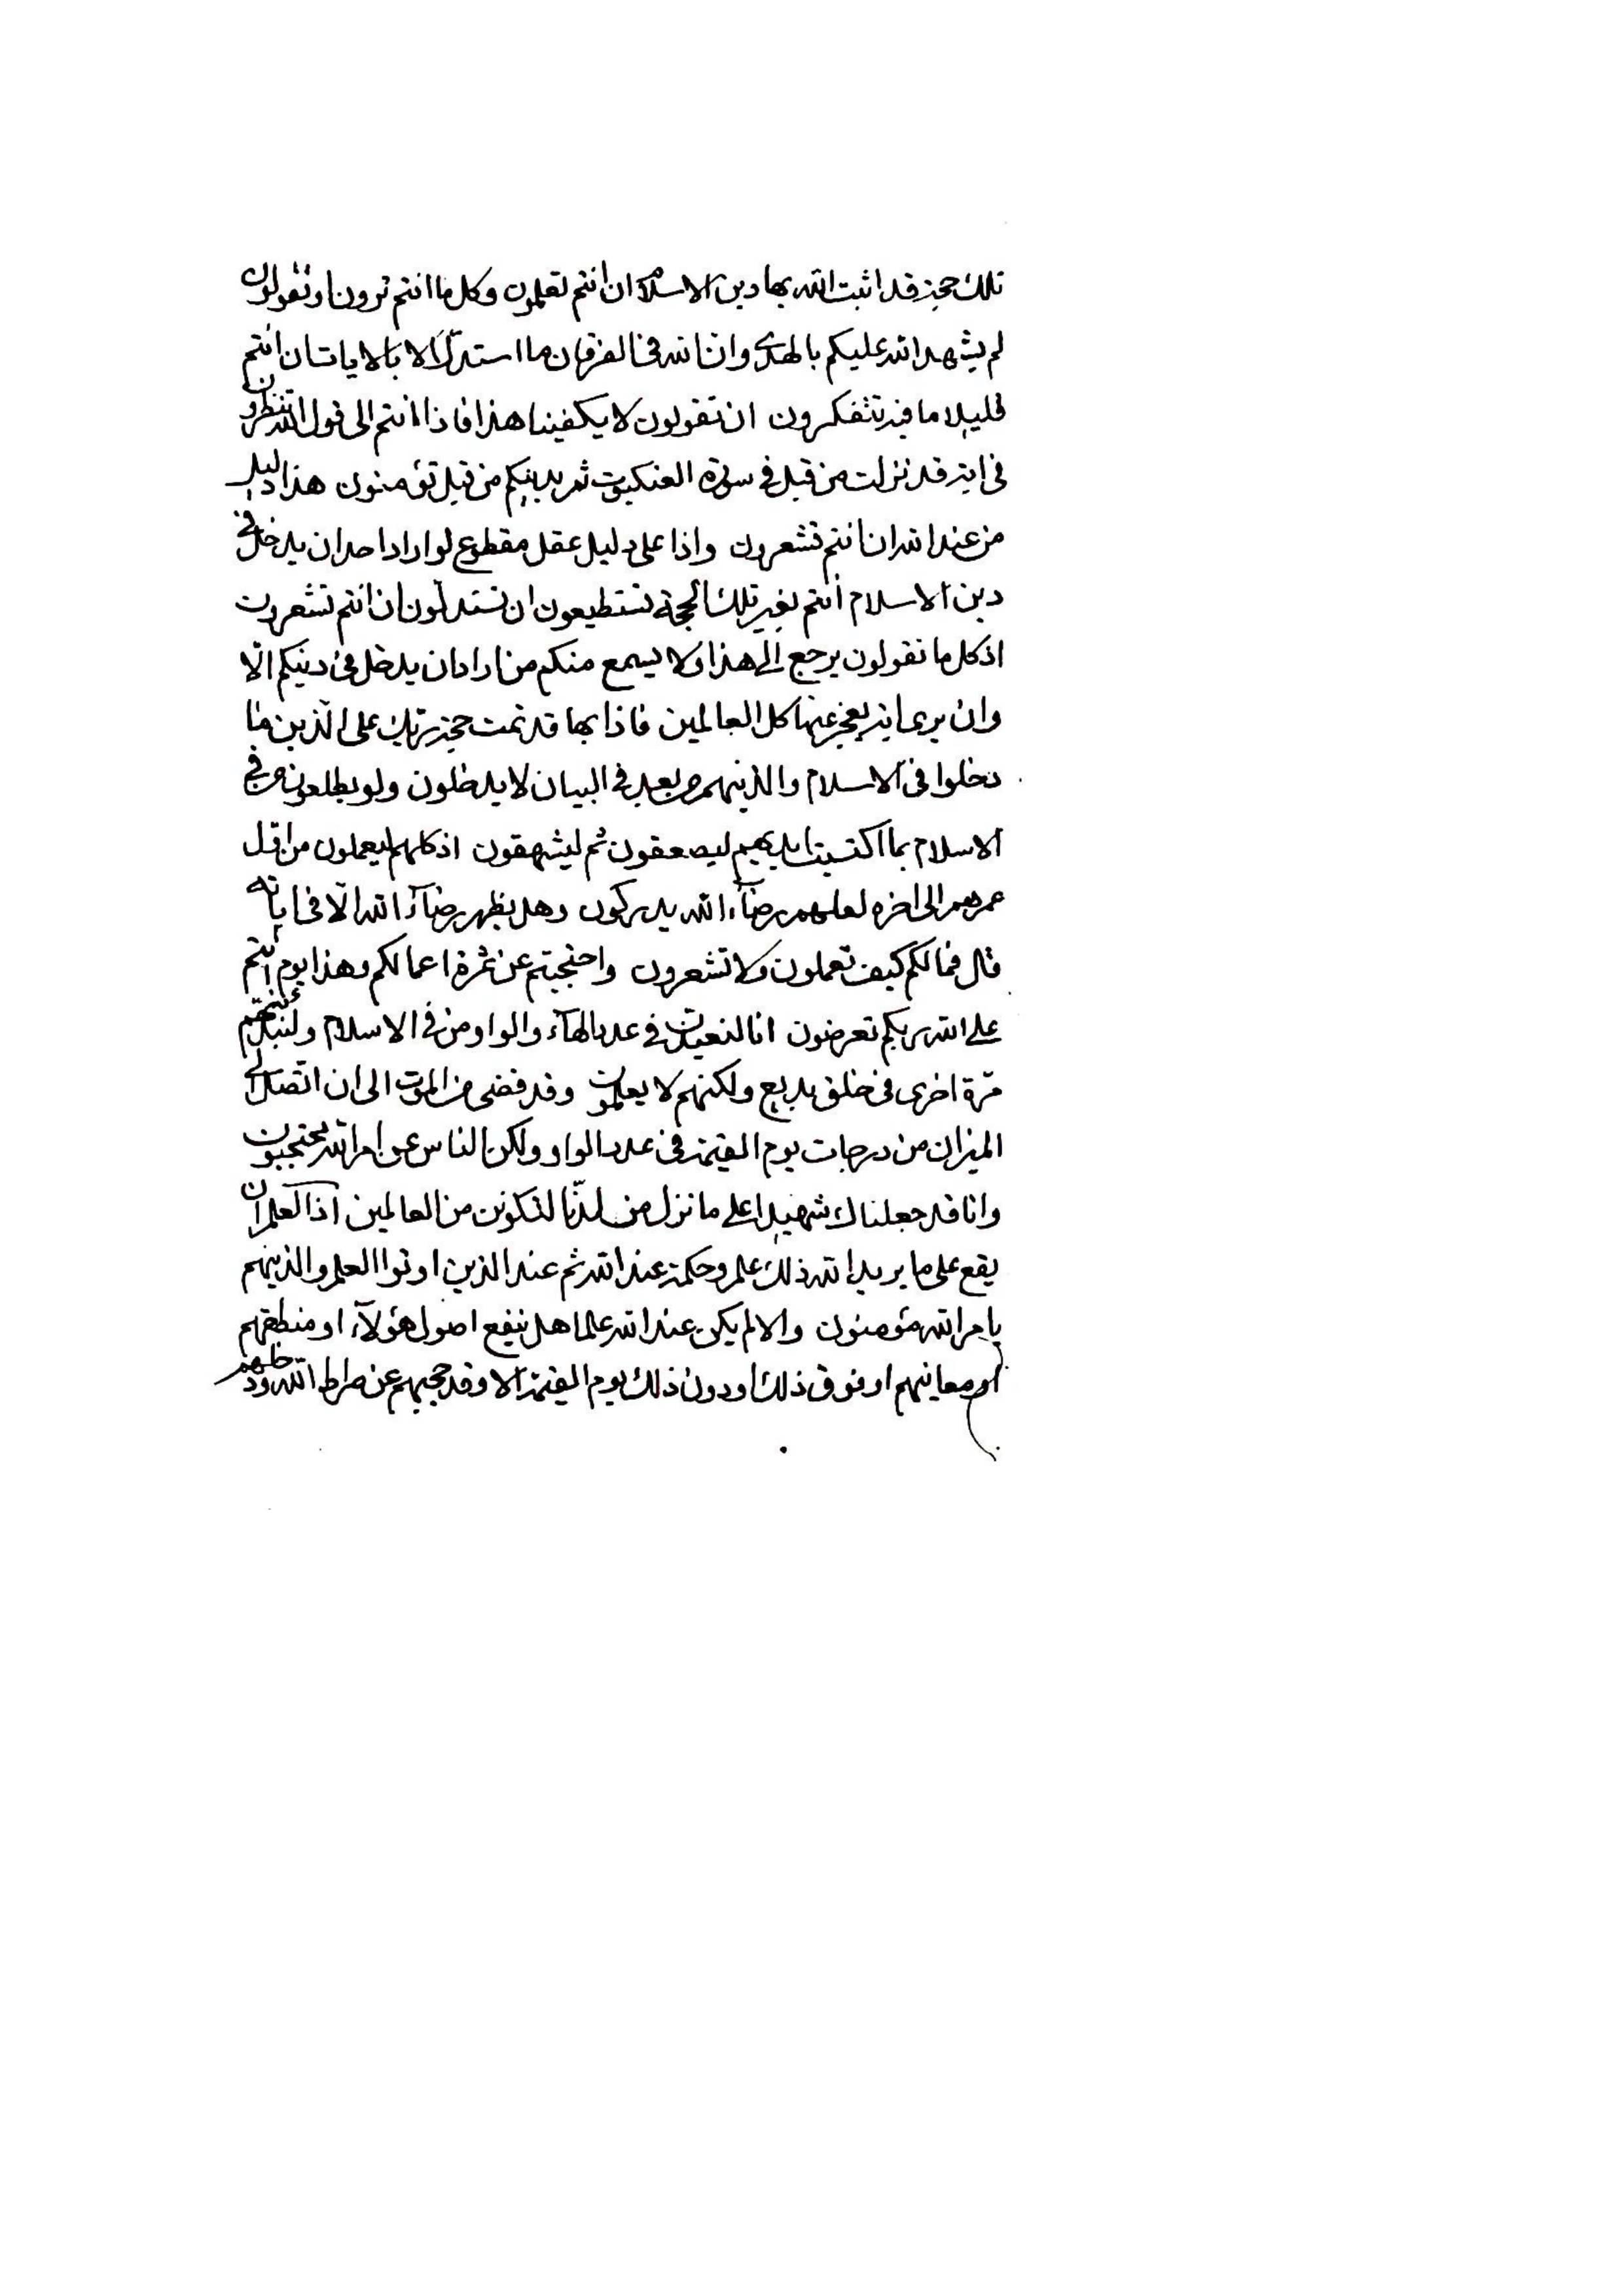 تلك حجة قد اثبت الله بها دين الاسلام ان انتم تعلمون وكل ما انتم ترون او تقولون
لم يشهد الله عليكم بالهدى وان الله في الفرقان ما استدل الا بالايات ان انتم
قليلا ما فيه تتفكرون ان تقولون لا يكفينا هذا فاذا انتم الى قول الله تنظرون
في اية قد نزلت من قبل في سورة العنكبوت ثم بدينكم من قبل تؤمنون هذا دليل
من عند الله ان انتم تشعرون واذا على دليل عقل مقطوع لو اراد احد ان يدخل في
دين الاسلام أنتم بغير تلك الحجة تستطيعون ان تستدلون ان انتم تشعرون
اذ كل ما تقولون يرجع الى هذا ولا يسمع منكم من اراد ان يدخل في دينكم الا
وان يرى اية يعجز عنها كل العالمين فاذا بها قد تمت حجة ربك على الذين ما
دخلوا في الاسلام والذينهم من بعد في البيان لا يدخلون ولو يطلعون من في
الاسلام بما اكتسبت ايديهم ليصعقون ثم ليشهقون اذ كلهم ليعملون من اول
عمرهم الى اخره لعلهم رضاء الله يدركون وهل يظهر رضاء الله الا في اياته
قال فما لكم كيف تعملون ولا تشعرون واحتجبتم عن ثمرة اعمالكم وهذا يوم أنتم
على الله ربكم تعرضون انا لنعيدن في عدد الهاء والواو من في الاسلام ولنبدئنهم
مرة اخرى في خلق بديع ولكنهم لا يعلمون وقد قضى من الموت الى ان اتصل الى
الميزان من درجات يوم القيمة في عدد الواو ولكن الناس عن امر الله محتجبون
وانا قد جعلناك شهيدا على ما نزل من لدنا لتكونن من العالمين اذ العلم ان
يقع على ما يريد الله ذلك علم وحكمة عند الله ثم عند الذين اوتوا العلم والذينهم
بامر الله مؤمنون والا لم يكن عند الله علما هل ينفع اصول هؤلاء او منطقهم
او معانيهم او فوق ذلك او دون ذلك يوم القيمة الا وقد حجبهم عن صراط الله ود خلهم